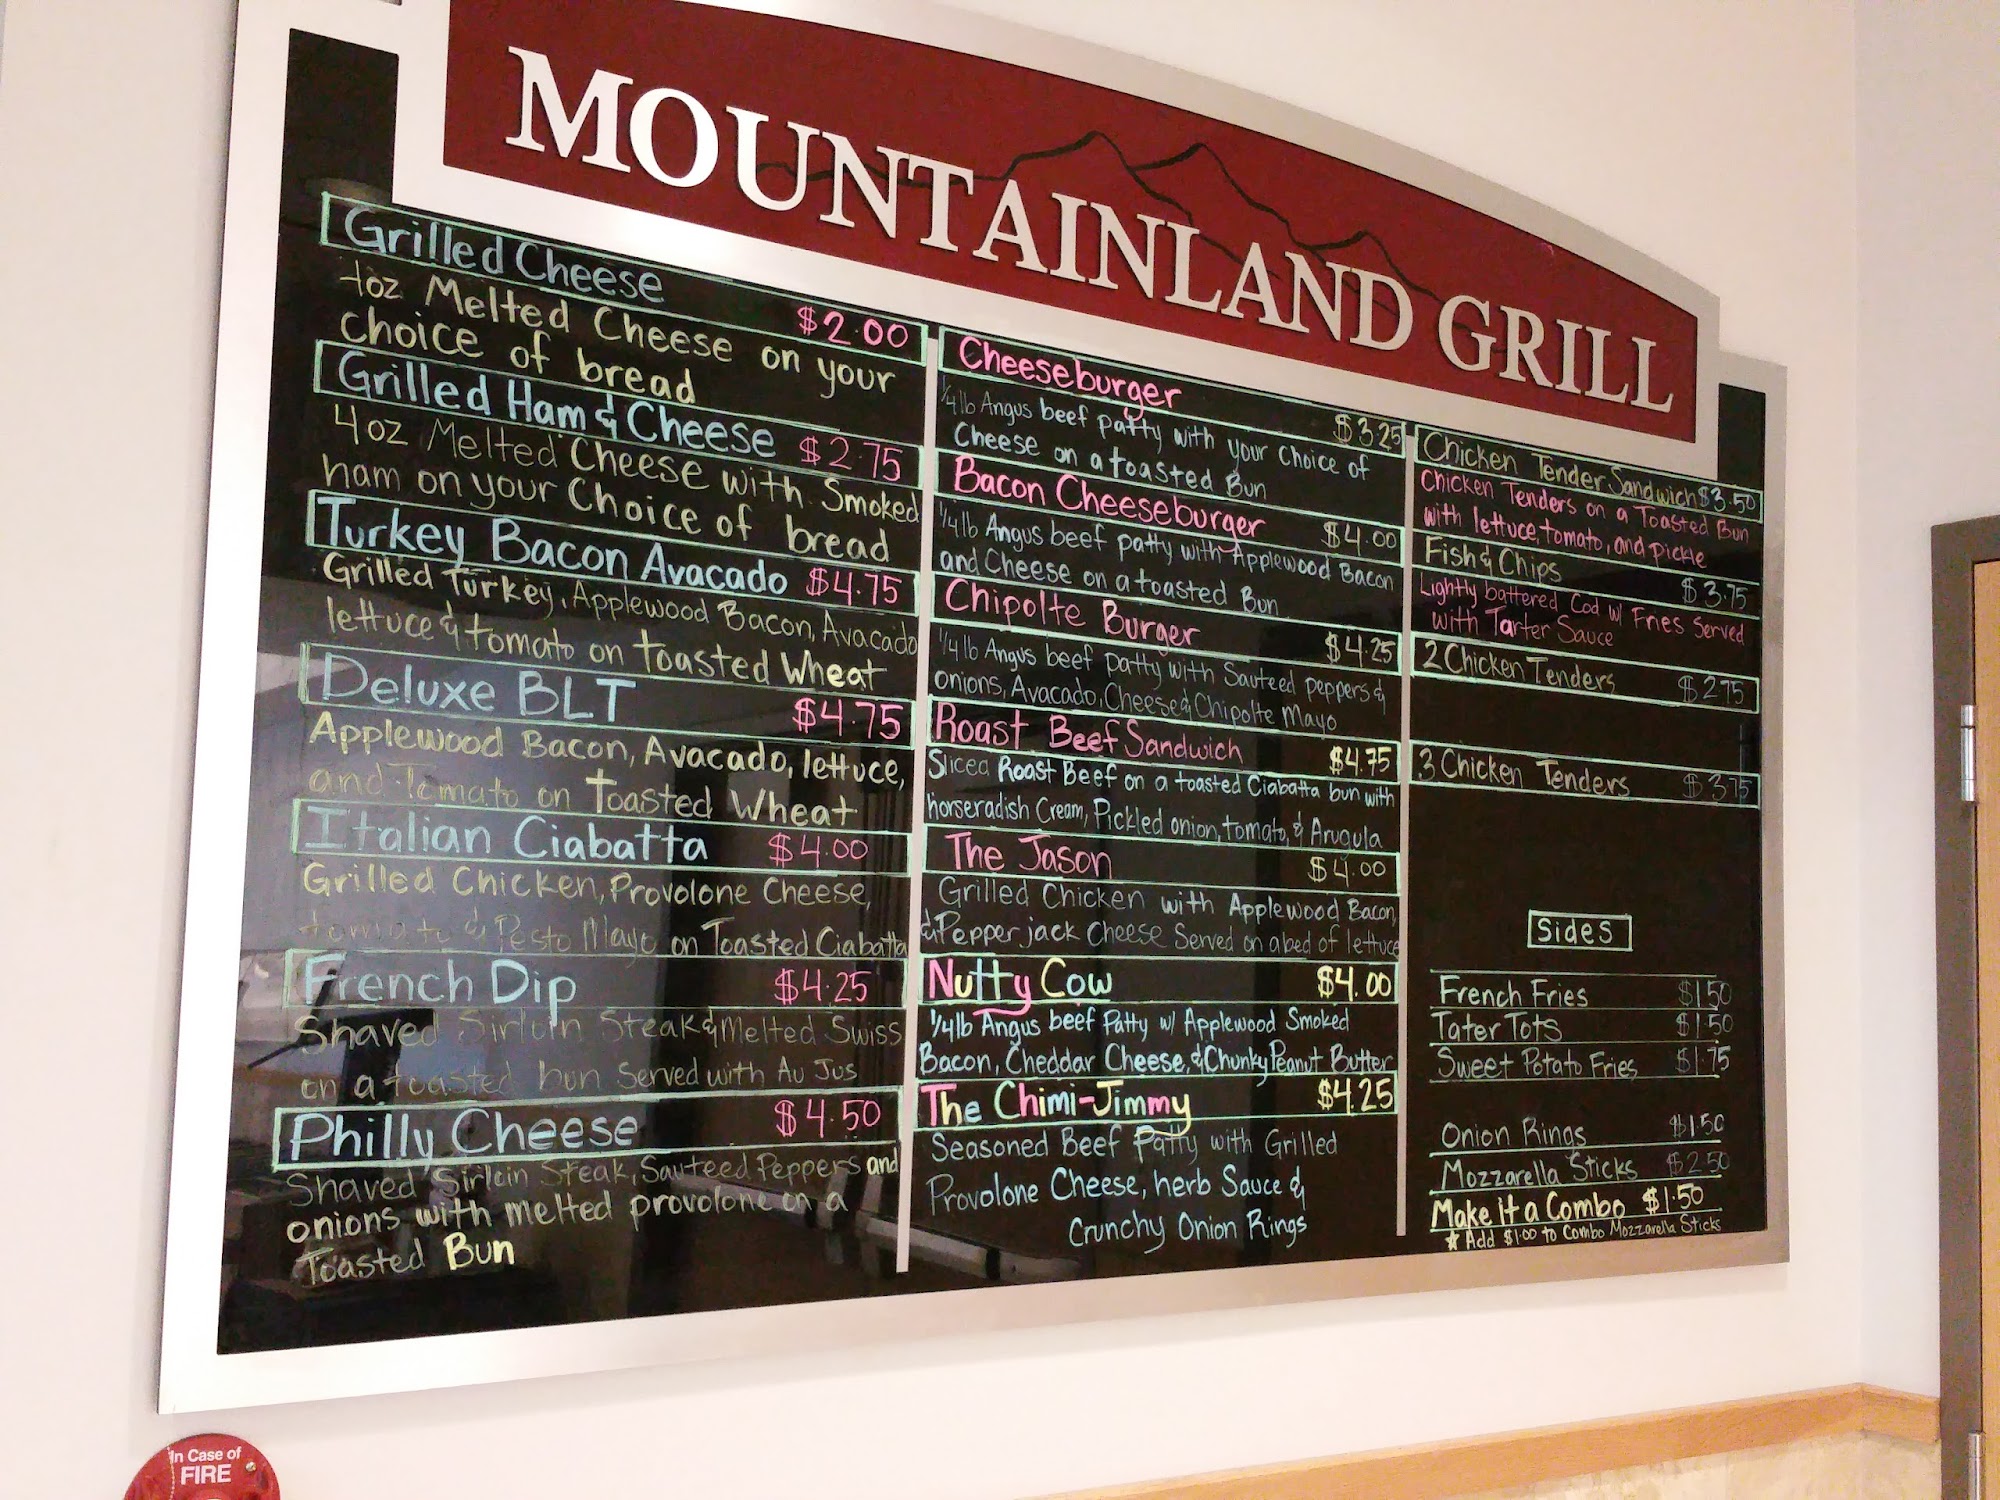 MOUNTAINLAND GRILL
Grilled Cheese $2.00
4oz Melted Cheese on your
choice of bread
Grilled Ham & Cheese $2.75
4oz Melted Cheese with Smoked
ham on your Choice of bread
Turkey Bacon Avacado $4.75
Grilled Turkey, Applewood Bacon, Avacado
lettuce & tomato on toasted Wheat
Deluxe BLT $4.75
Applewood Bacon, Avacado, lettuce,
and Tomato on Toasted Wheat
Italian Ciabatta $4.00
Grilled Chicken, Provolone Cheese,
tomato & Pesto Mayo on Toasted Ciabatta
French Dip $4.25
Shaved Sirloin Steak & Melted Swiss
on a toasted bun Served with Au Jus
Philly Cheese $4.50
Shaved Sirloin Steak, Sauteed Peppers and
onions with melted provolone on a
Toasted Bun
Cheeseburger $3.25
1/4lb Angus beef patty with your Choice of
Cheese on a toasted Bun
Bacon Cheeseburger $4.00
1/4lb Angus beef patty with Applewood Bacon
and Cheese on a toasted Bun
Chipolte Burger $4.25
1/4lb Angus beef patty with Sauteed peppers &
onions, Avacado, Cheese & Chipolte Mayo
Roast Beef Sandwich $4.75
Sliced Roast Beef on a toasted Ciabatta bun with
horseradish Cream, Pickled onion, tomato, & Arugula
The Jason $4.00
Grilled Chicken with Applewood Bacon,
& Pepper jack Cheese Served on a bed of lettuce
Nutty Cow $4.00
1/4lb Angus beef Patty w/ Applewood Smoked
Bacon, Cheddar Cheese, & Chunky Peanut Butter
The Chimi-Jimmy $4.25
Seasoned Beef Patty with Grilled
Provolone Cheese, herb Sauce &
Crunchy Onion Rings
Chicken Tender Sandwich $3.50
Chicken Tenders on a Toasted Bun
with lettuce, tomato, and pickle
Fish & Chips $3.75
Lightly battered Cod w/ Fries Served
with Tarter Sauce
2 Chicken Tenders $2.75
3 Chicken Tenders $3.75
Sides
French Fries $1.50
Tater Tots $1.50
Sweet Potato Fries $1.75
Onion Rings $1.50
Mozzarella Sticks $2.50
Make It a Combo $1.50
★ Add $1.00 to Combo Mozzarella Sticks
In Case of
FIRE